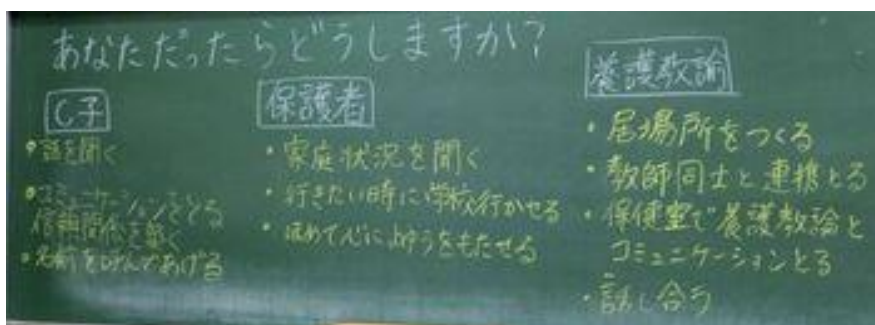 あなただったらどうしますか？
C子
・話を聞く
・コミュニケーションをとる
信頼関係を築く
・名前を呼んであげる
保護者
・家庭状況を聞く
・行きたい時に学校行かせる
・ほめて心によゆうをもたせる
養護教諭
・居場所をつくる
・教師同士と連携とる
・保健室で養護教諭と
コミュニケーションとる
・話し合う